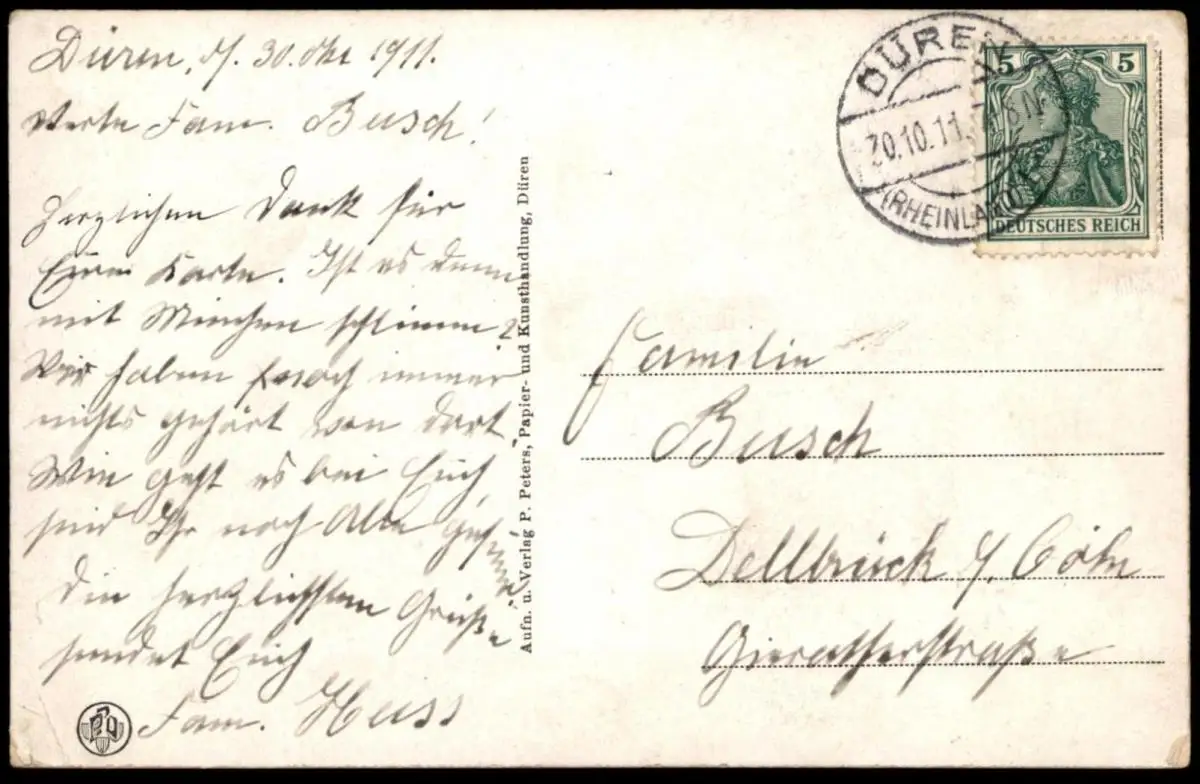 Düren, d. 30. Okt 1911.
Werte Fam. Busch!
Herzlichen Dank für
Eure Karte. Ist es denn
mit Minchen schlimm?
Wir haben noch immer
nichts gehört von dort
Wie geht es bei Euch,
seid Ihr noch Alle gesund
Die herzlichsten Grüße
sendet Euch
Fam. Heuss
Aufn. u. Verlag P. Peters, Papier- und Kunsthandlung, Düren
DÜREN
30.10.11. 8 N
(RHEINLAND)
5 5
DEUTSCHES REICH
Familie
Busch
Dellbrück b/ Cöln
Gieratherstraße